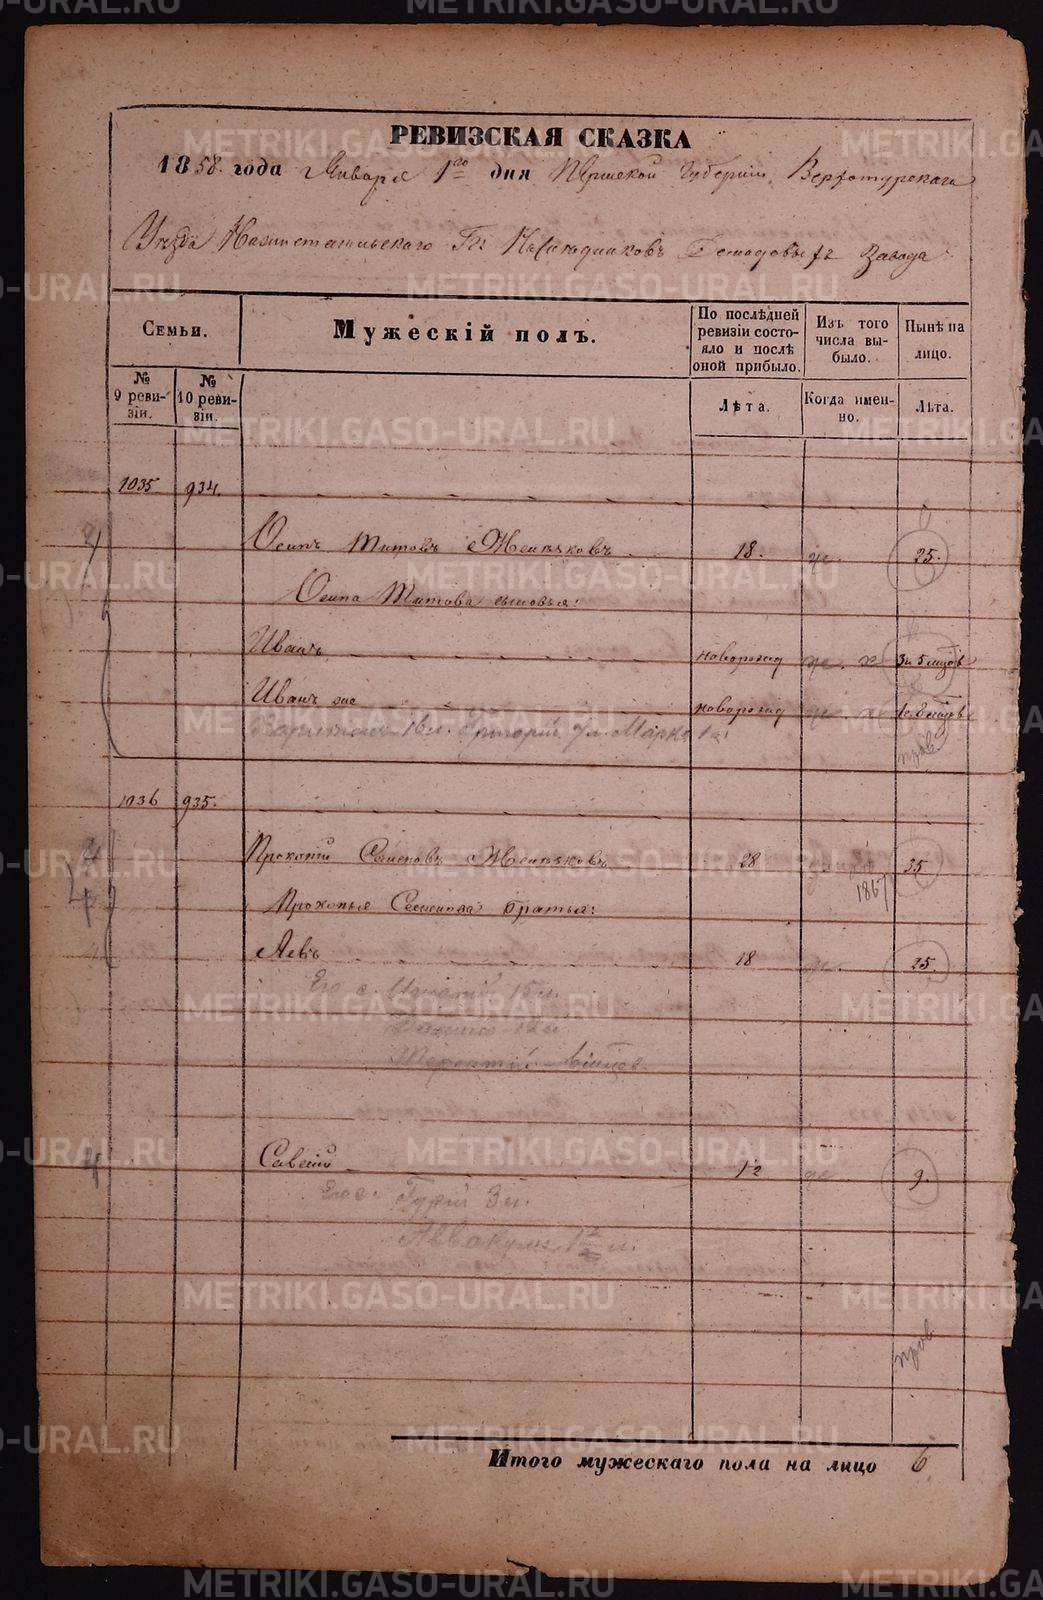 РЕВИЗСКАЯ СКАЗКА
1858 года Января 1го дня Пермской Губернии, Верхотурскаго
Уѣзда Нижнетагильскаго Гг. Наслѣдниковъ Демидовыхъ Завода
Семьи.
Мужескій полъ.
По послѣдней ревизіи состояло и послѣ оной прибыло.
Изъ того числа выбыло.
Нынѣ на лицо.
№ 9 ревизіи.
№ 10 ревизіи.
Лѣта.
Когда именно.
Лѣта.
1035 934.
Осипъ Титовъ 18. 25.
Осипа Титова сыновья:
Иванъ новорожд 5 мцовъ
Иванъ же новорожд
16 л. Григорій Марко
пров
1036 935.
Прокопій Семеновъ 28 1867 35.
Прокопья Семенова братья:
Левъ 18 25.
Его с. 15 л.
Терентій
Савелій 12 9.
Его с. Гурій 3 л.
Аввакумъ 1 1/2 л.
пров
Итого мужескаго пола на лицо 6
METRIKI.GASO-URAL.RU